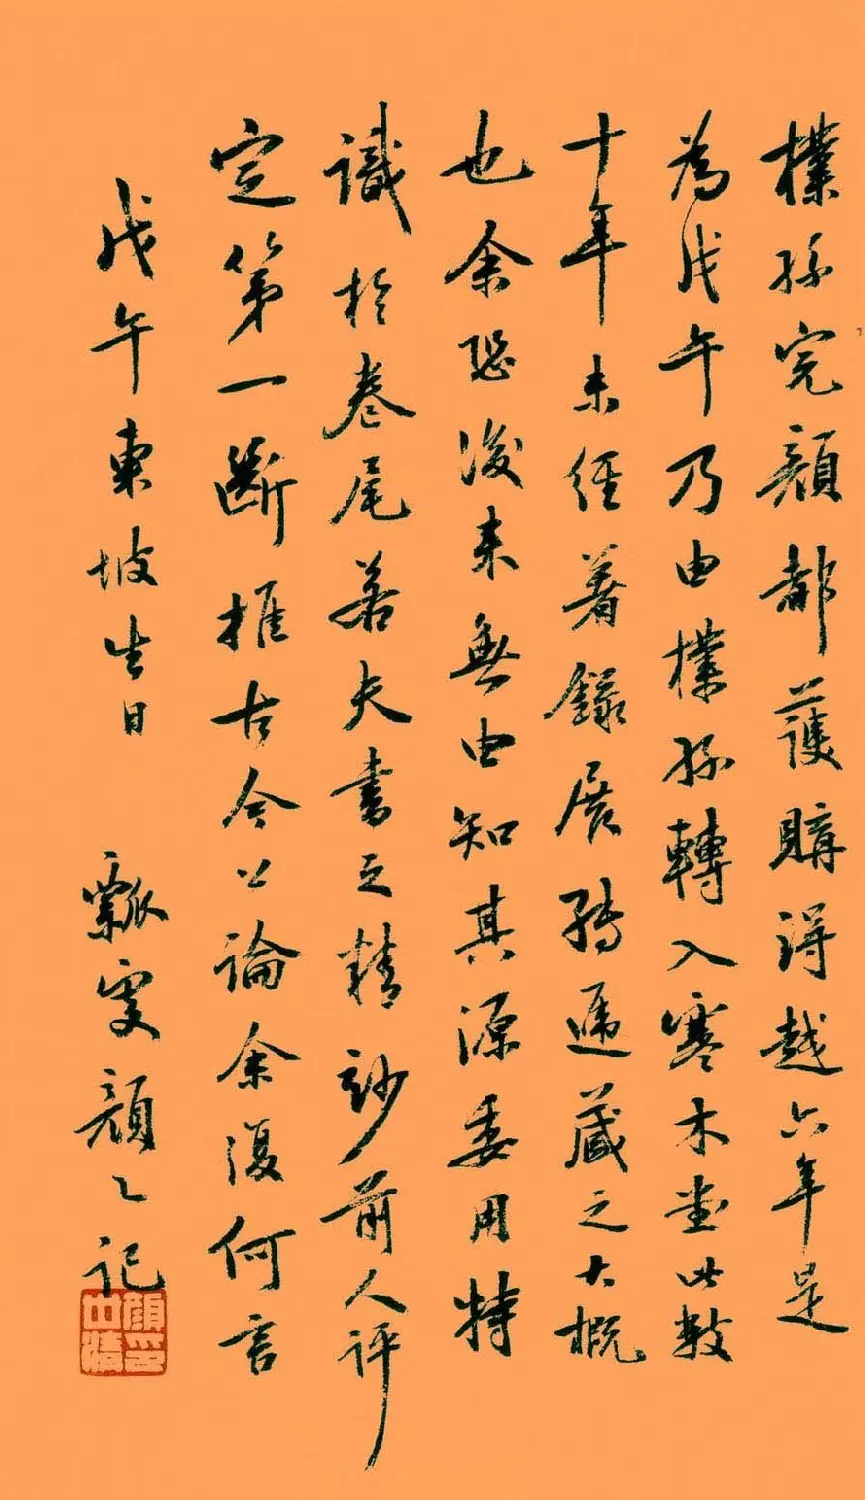 樸孫完顏都護購得越六年是
為戊午乃由樸孫轉入寒木堂此數
十年未經著錄展轉遞藏之大概
也余恐後來無由知其源委用特
識於卷尾若夫書之精妙前人評
定第一斷推古今公論余復何言
戊午東坡生日 瓢叟顏〻記
顏世清印